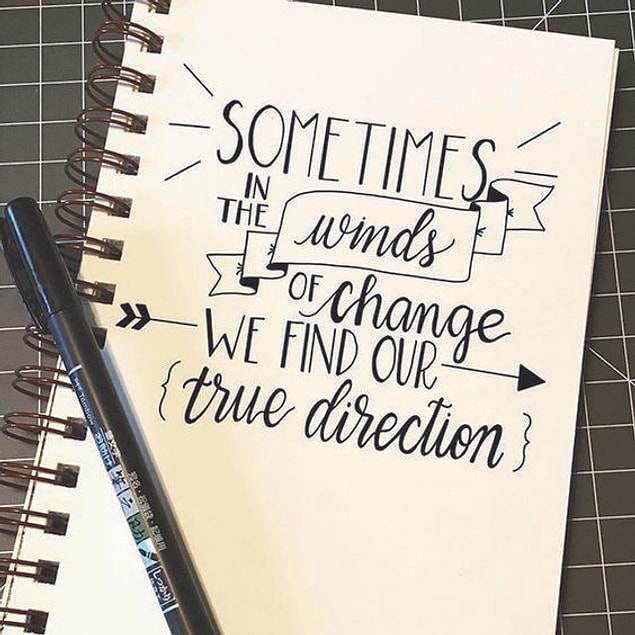 SOMETIMES
IN
THE
winds
OF change
WE FIND OUR
{true direction}
Tombow
しっかり